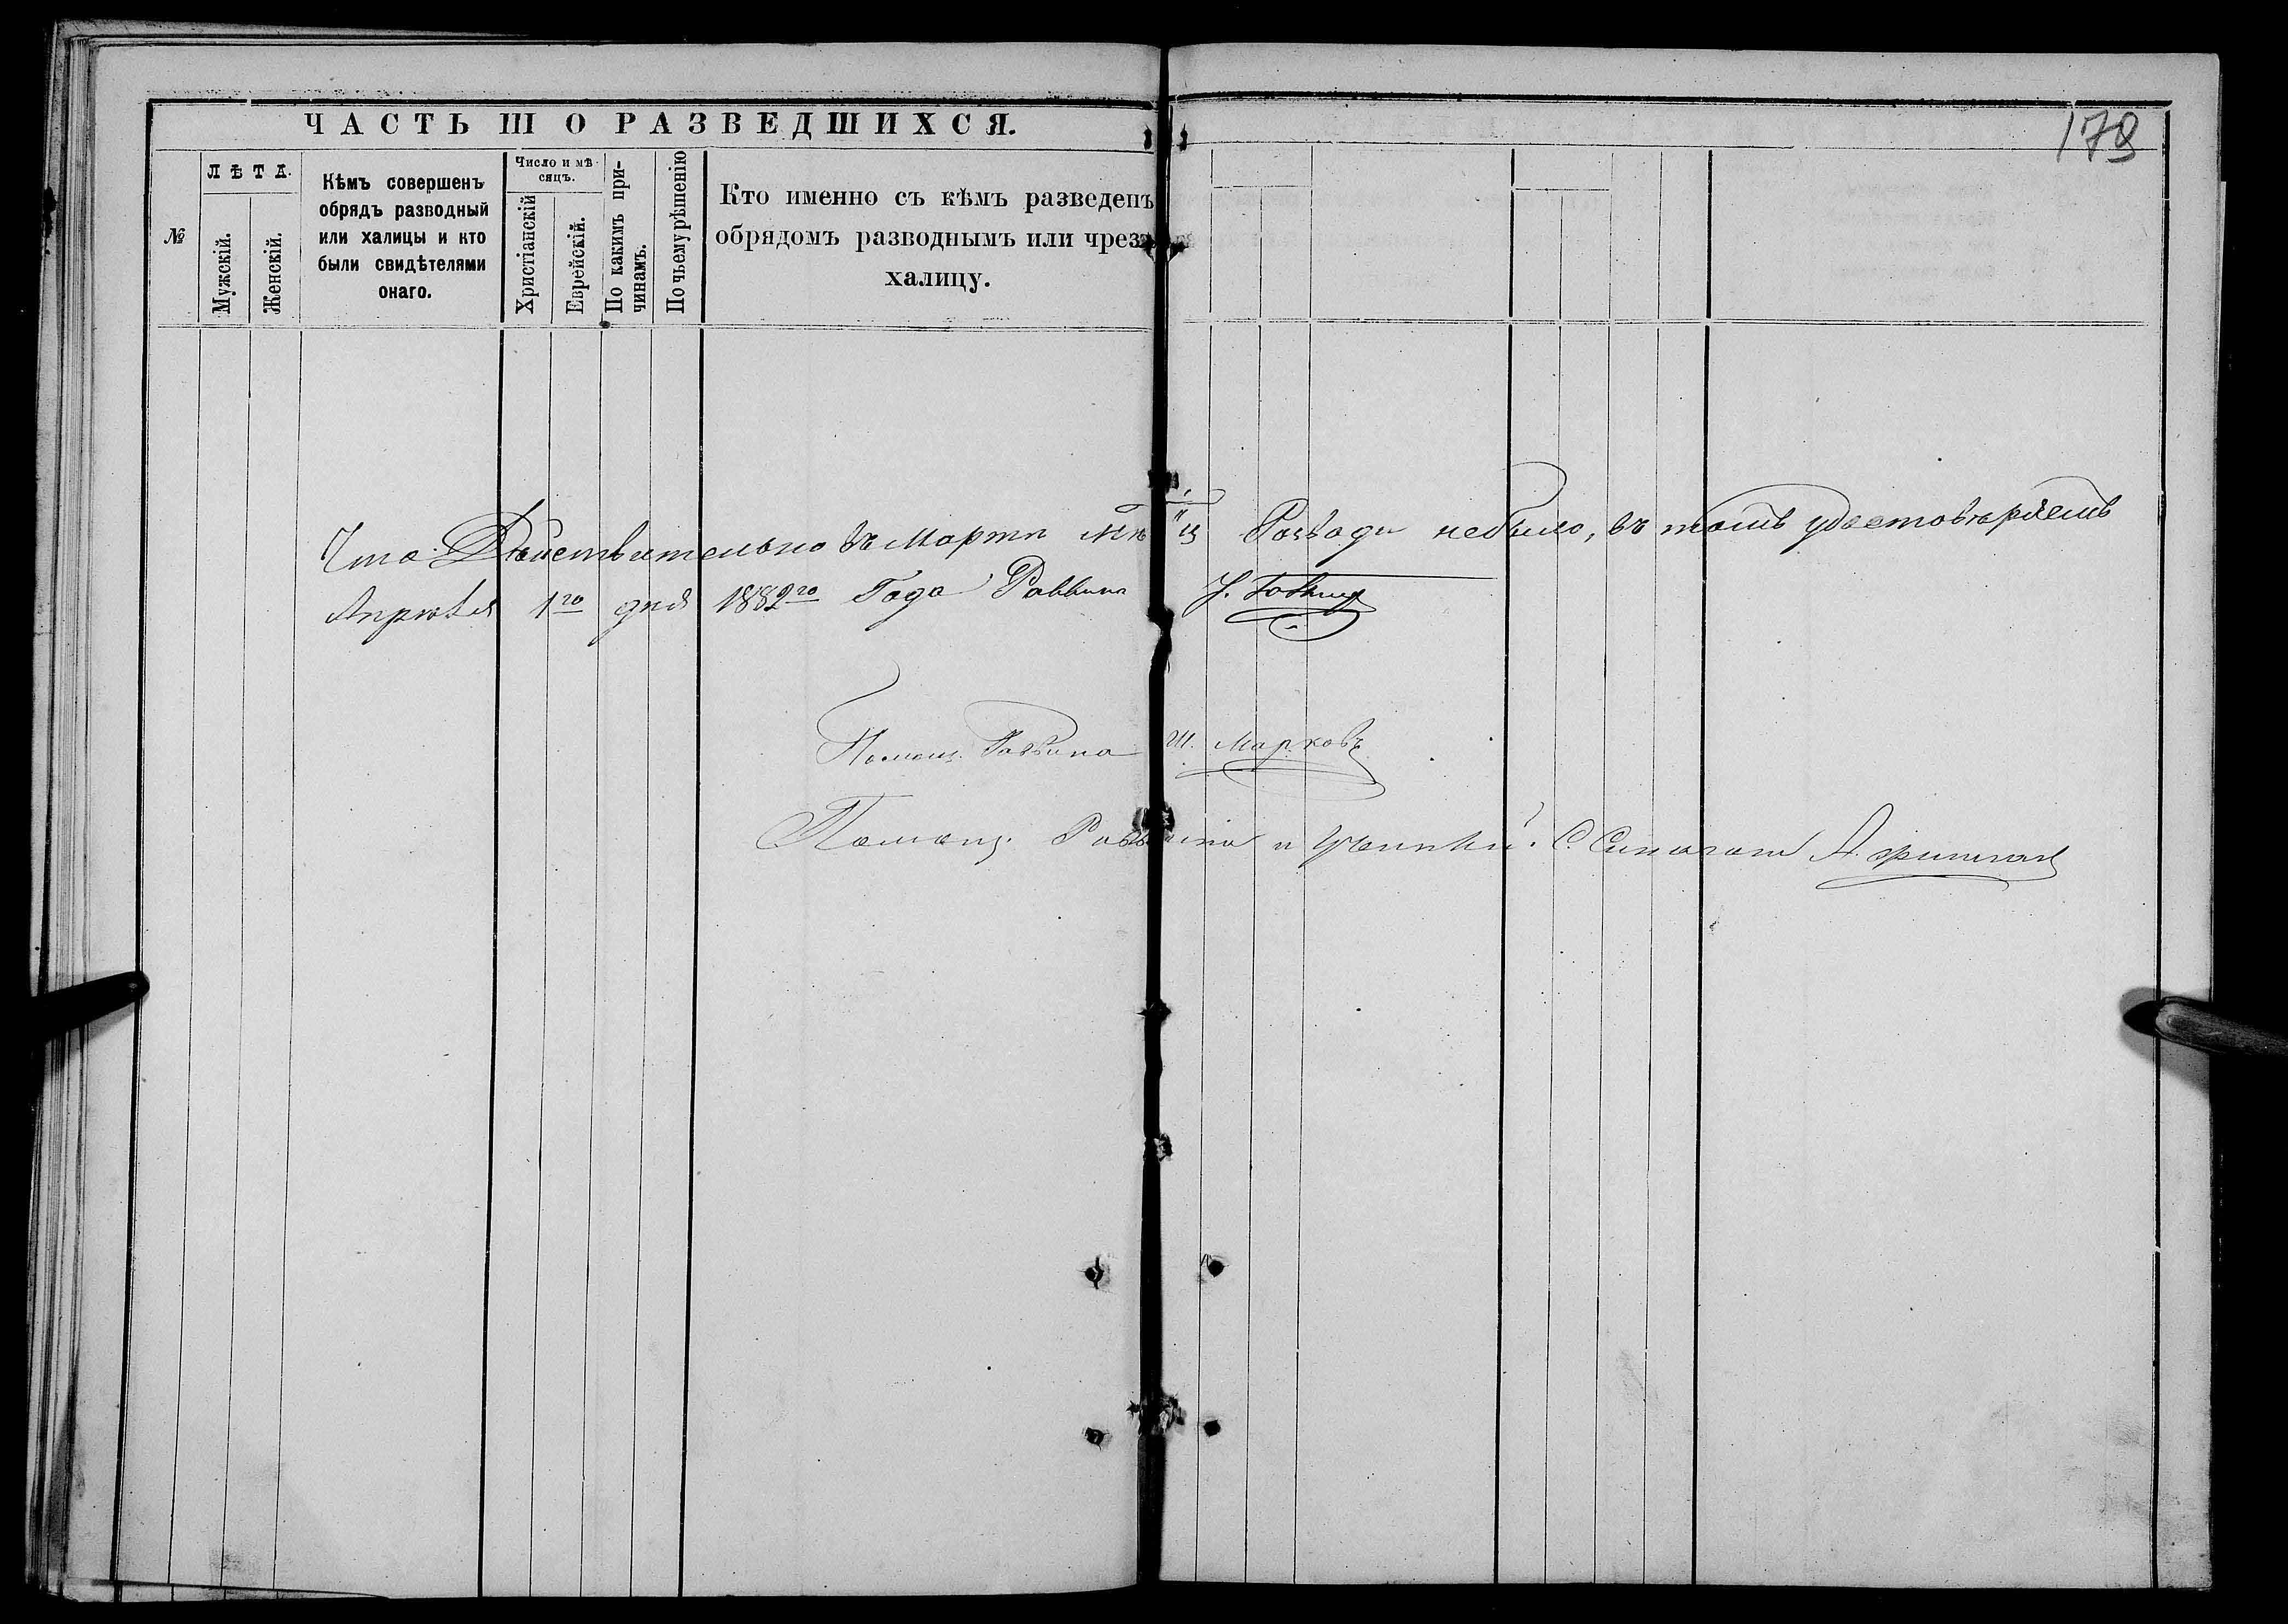 ЧАСТЬ III О РАЗВЕДШИХСЯ.
178
№
ЛѢТА.
Мужскій.
Женскій.
Кѣмъ совершенъ
обрядъ разводный
или халицы и кто
были свидѣтелями
онаго.
Число и мѣ-
сяцъ.
Христіанскій
Еврейскій.
По какимъ при-
чинамъ.
По чьему рѣшенію
Кто именно съ кѣмъ разведенъ
обрядомъ разводнымъ или чрезъ
халицу.
Что Действительно въ Марти М-ц Розводи небыло, въ томъ удостовѣряемъ
Апрѣля 1го дня 1882го Года Раввинъ
Помощ. Раввина Ш. Марковъ
Помощ. Раввина и